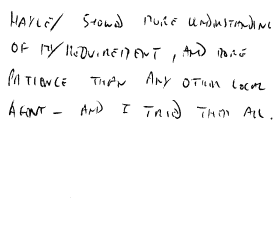 HAYLEY SHOWED MORE UNDERSTANDING
OF MY REQUIREMENT, AND MORE
PATIENCE THAN ANY OTHER LOCAL
AGENT - AND I TRIED THEM ALL.